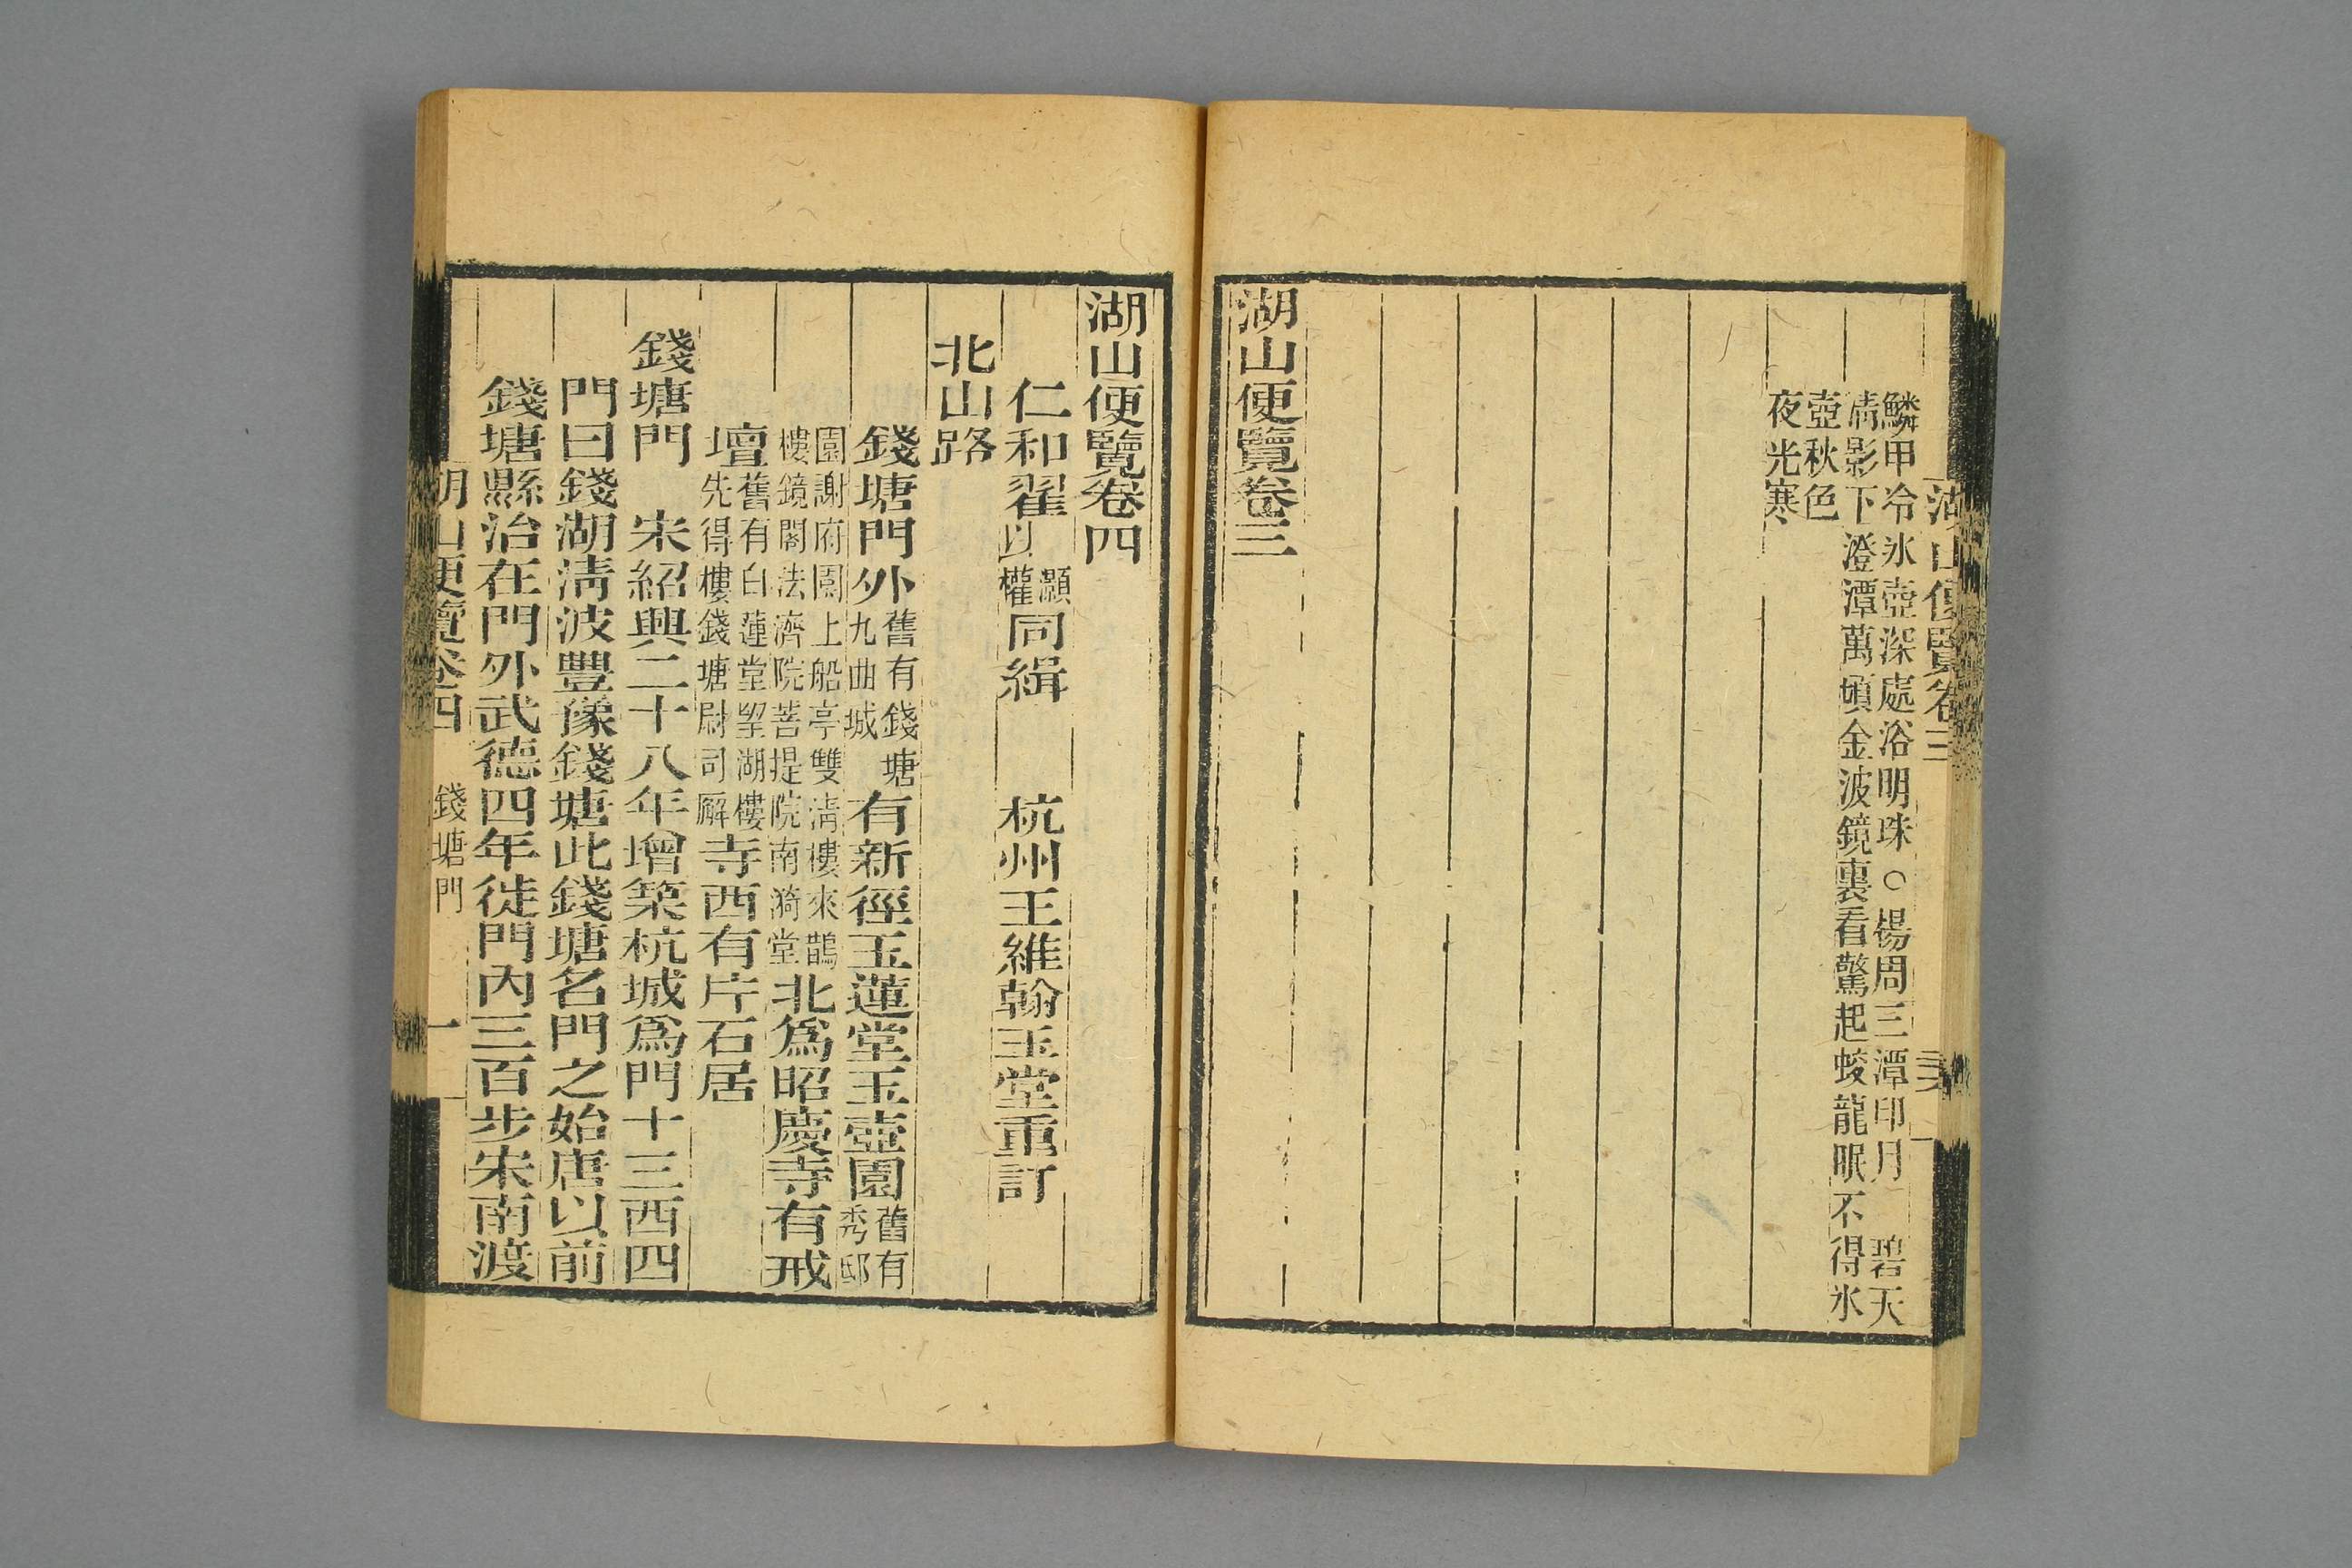 湖山便覽卷三
鱗甲冷氷壺深處浴明珠○楊周三潭印月 碧天
淸影下澄潭萬頃金波鏡裏看驚起蛟龍眠不得氷
壺秋色
夜光寒
湖山便覽卷三
湖山便覽卷四
仁和翟灝以權同緝 杭州王維翰玉堂重訂
北山路
錢塘門外舊有錢塘九曲城有新徑玉蓮堂玉壺園舊有秀邸
園謝府園上船亭雙淸樓來鵲樓鏡閣法濟院菩提院南漪堂北爲昭慶寺有戒
壇舊有白蓮堂望湖樓先得樓錢塘尉司廨寺西有片石居
錢塘門 宋紹興二十八年增築杭城爲門十三西四
門曰錢湖淸波豐豫錢塘此錢塘名門之始唐以前
錢塘縣治在門外武德四年徙門內三百步宋南渡
湖山便覽卷四 錢塘門 一